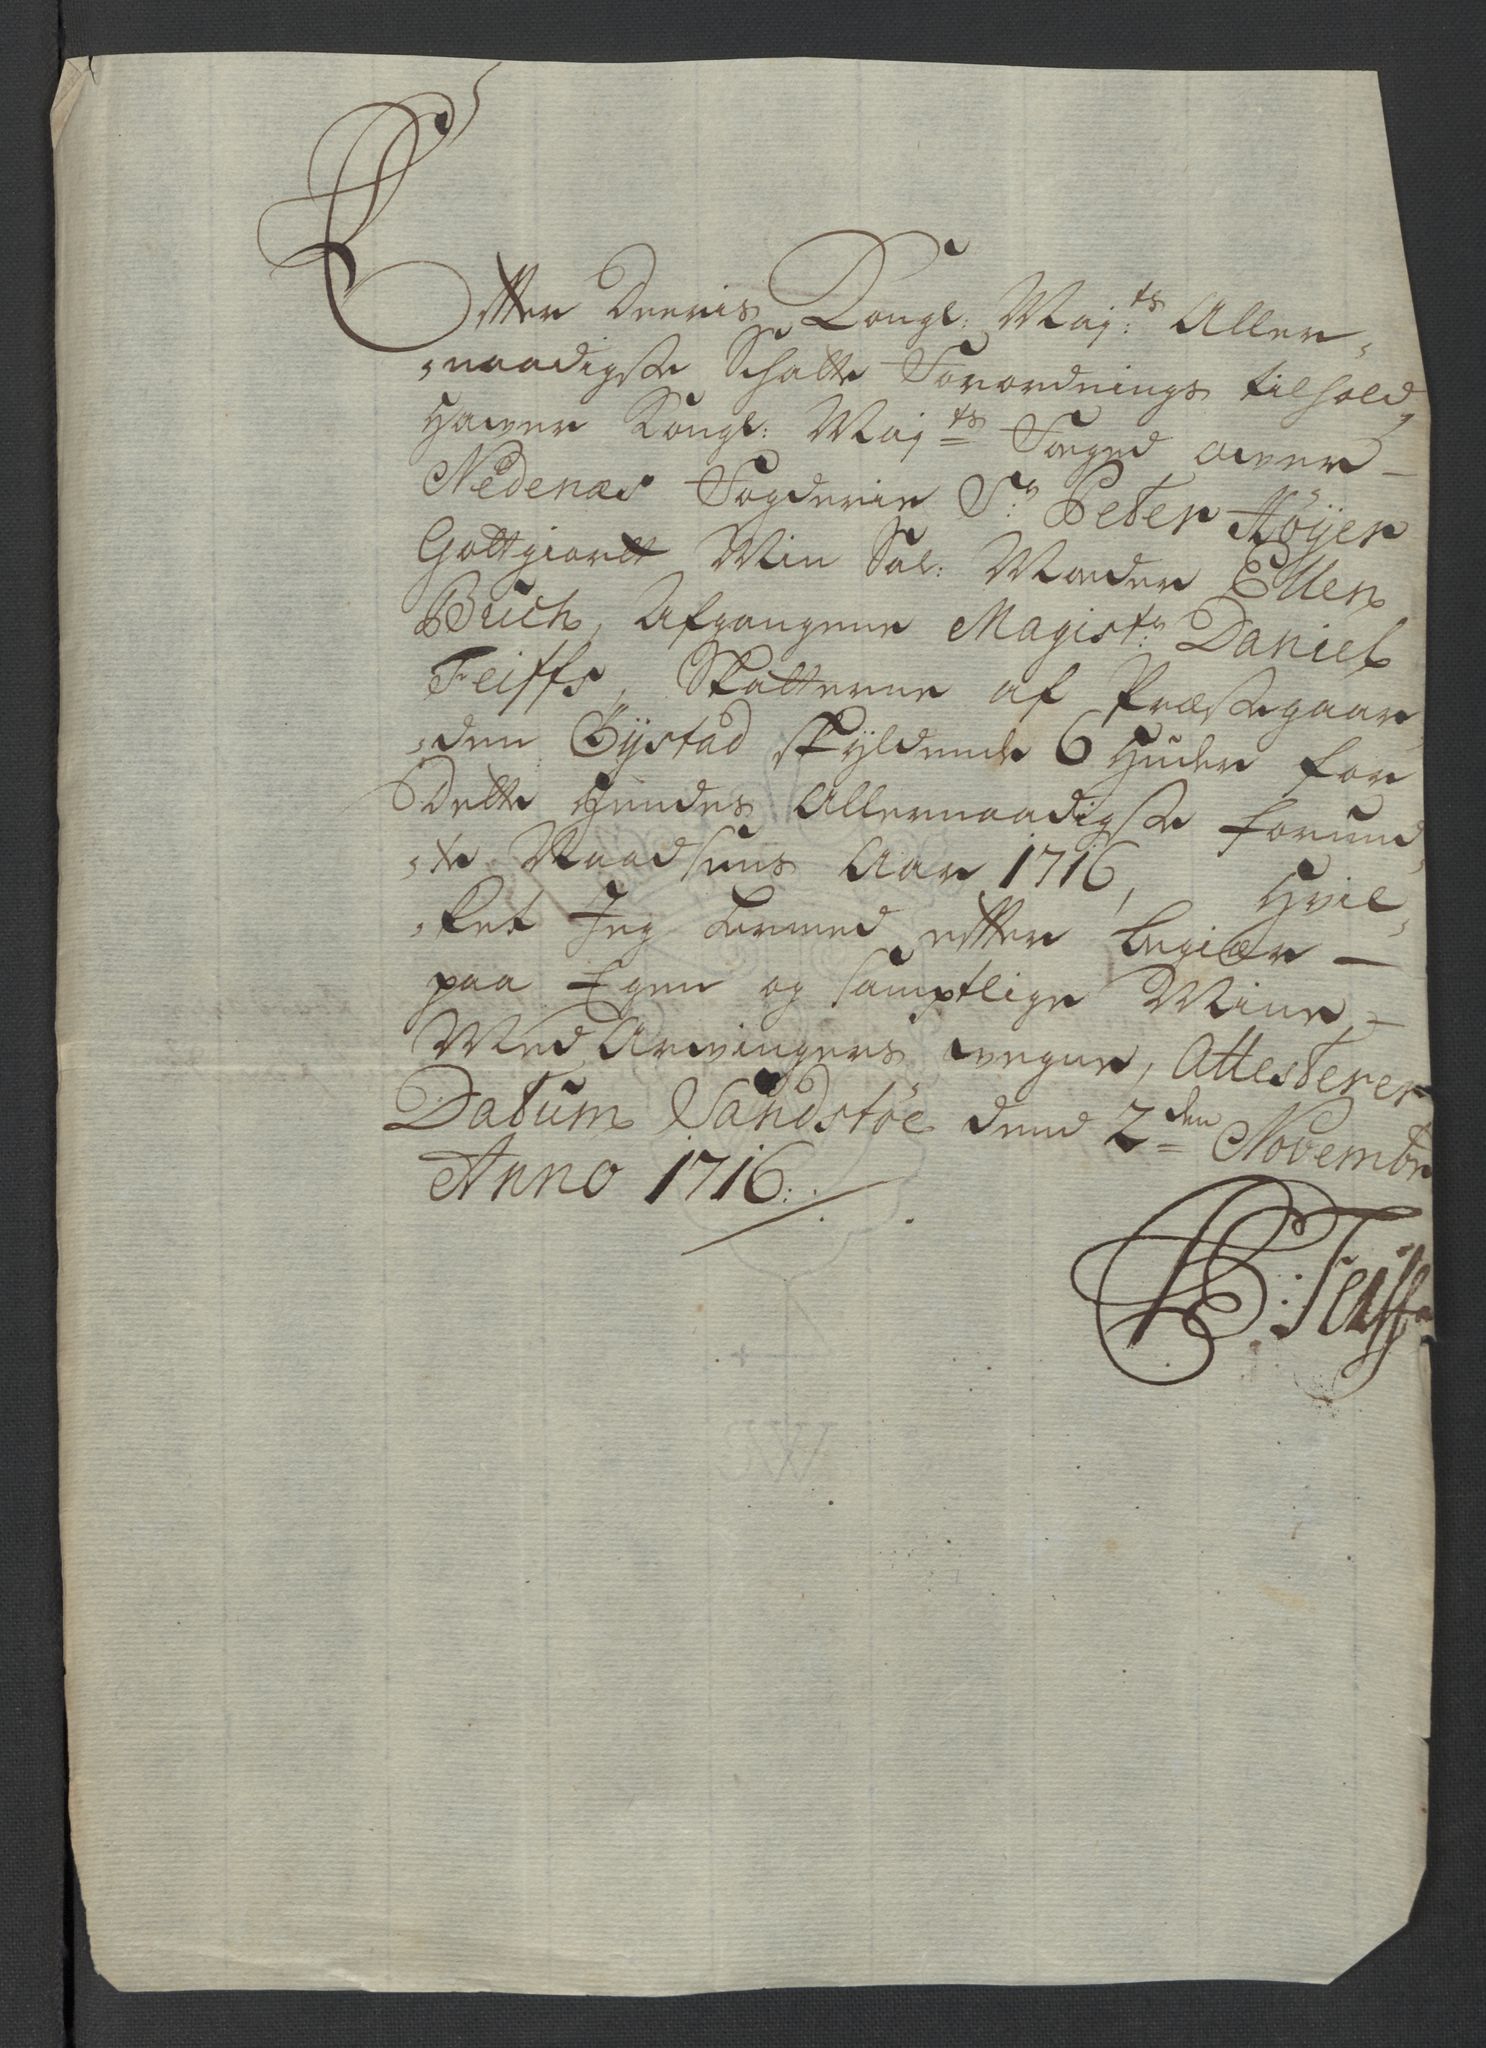 Efter Deeris Kongl: Maj:ts Aller,
,naadigste Schatte Forordnings tilhold,
Hawer Kongl: Maj:ts Foeged ower
Nedenæs Fogderie Sr: Peter Höyer
Gottgiordt Min Sal: Moder Ellen
Buch, Afgangene Magistr: Daniel
Feiffs, Skatterne af Præstegaar,
,den Öÿstad skyldende 6 Huder for
Dette Hendes Allernaadigste forund,
,te Naadsens Aar 1716, Hvil,
,ket Jeg hermed effter begiær
paa Egen og samptlige Mine
Med Arwingers wegne, Attesterer
Datum Sandstöe dend 2den Novembr
Anno 1716:
Feiff